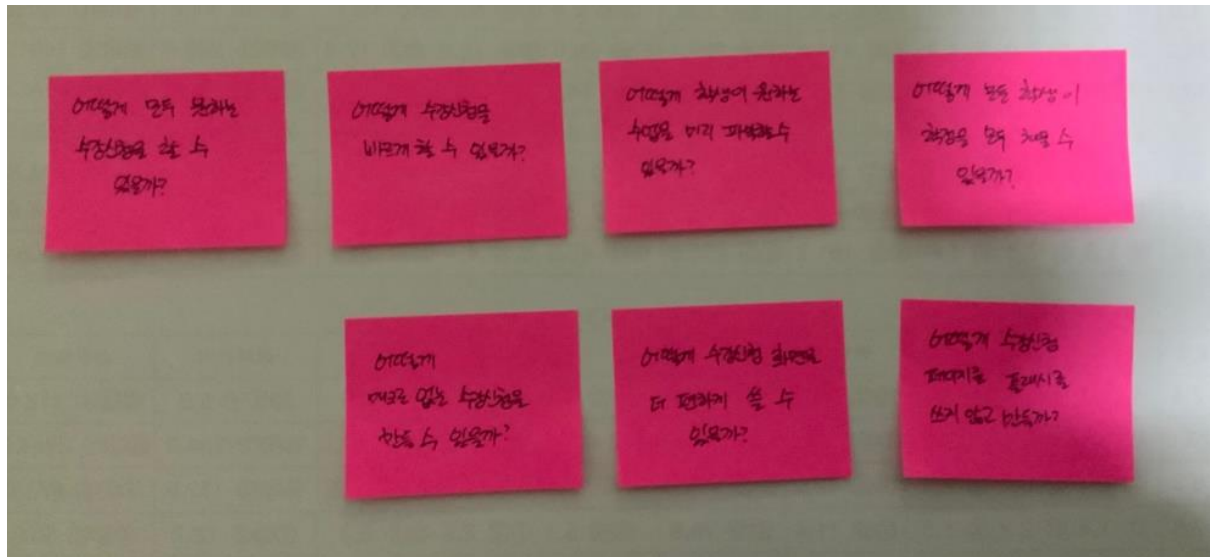 어떻게 모두 원하는
수강신청을 할 수
있을까?
어떻게 수강신청을
빠르게 할 수 있을까?
어떻게 학생이 원하는
수업을 미리 파악할 수
있을까?
어떻게 모든 학생이
학점을 모두 채울 수
있을까?
어떻게
매크로 없는 수강신청을
만들 수 있을까?
어떻게 수강신청 화면을
더 편하게 쓸 수
있을까?
어떻게 수강신청
페이지를 플래시를
쓰지 않고 만들까?